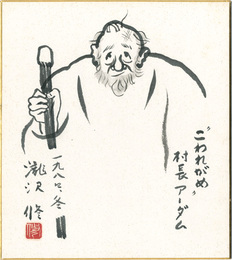 "こわれがめ"
村長アーダム
一九八〇、冬
瀧沢修